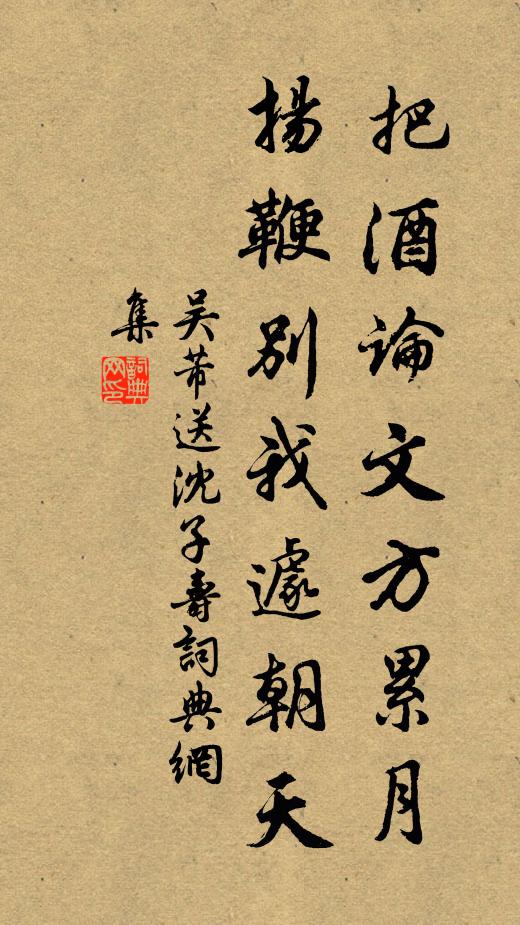 把酒論文方累月
揚鞭別我遽朝天
吴芾送沈子壽詞典網
集
詞典
网印